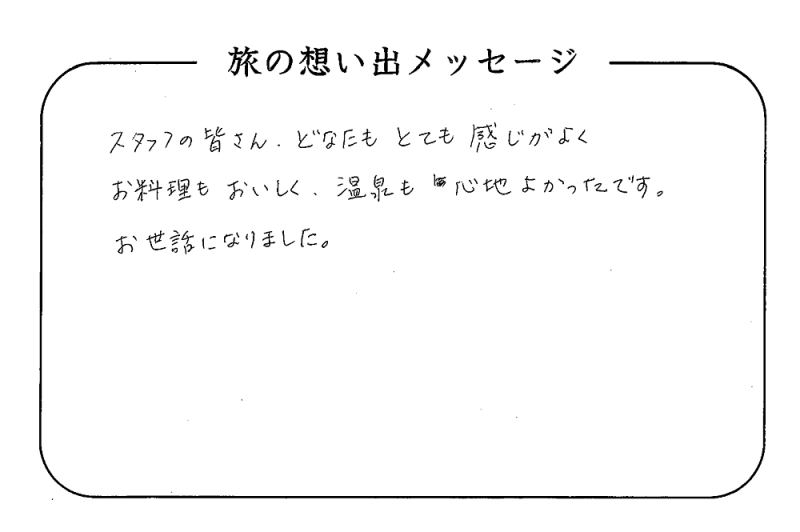 旅の想い出メッセージ
スタッフの皆さん、どなたもとても感じがよく
お料理もおいしく、温泉も心地よかったです。
お世話になりました。